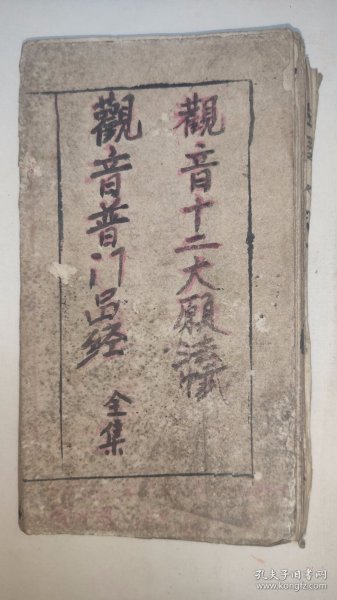 觀音十二大願法懺
觀音普门品经 全集
孔夫子旧书网
www.kongfz.com